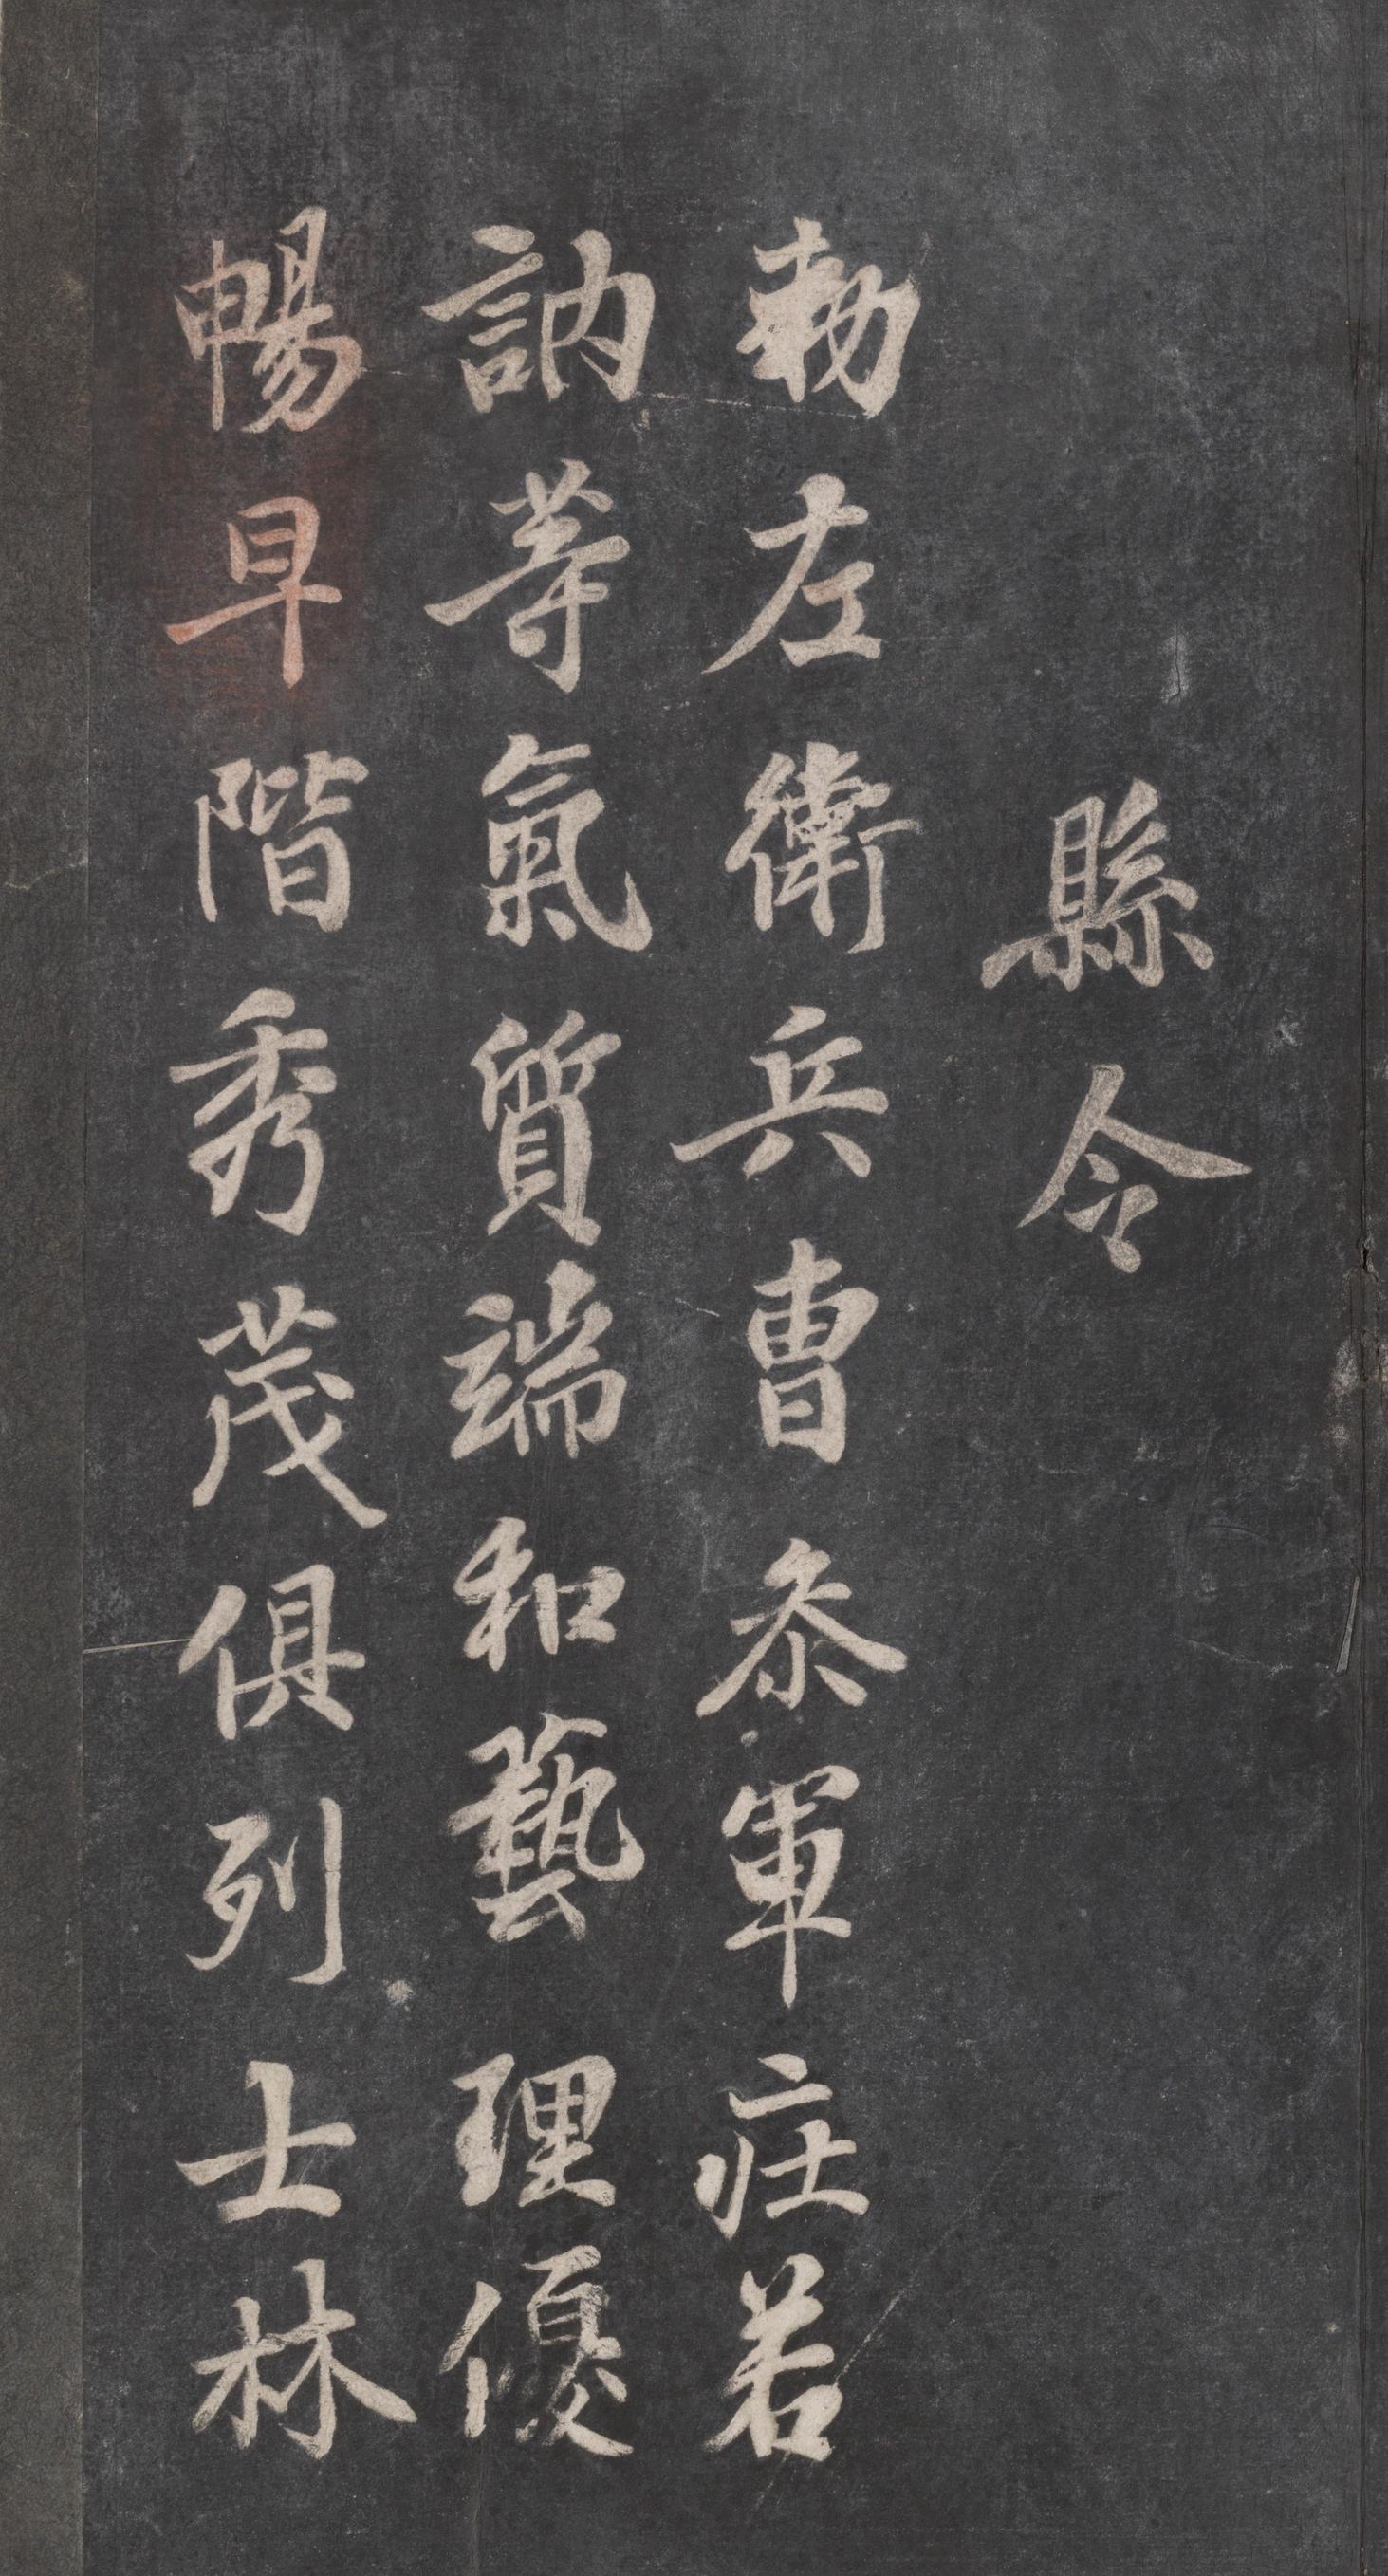 縣令
勅左衛兵曹叅軍庄若
訥等氣質端和藝理優
暢早階秀茂俱列士林